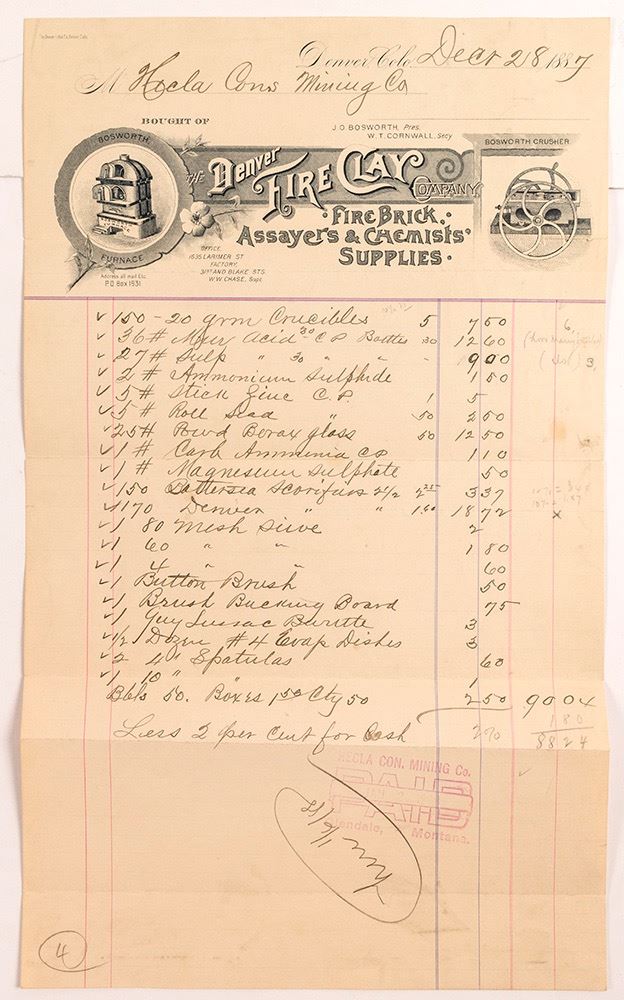 Denver, Colo. Decr 28 1887
M Hecla Cons Mining Co
BOUGHT OF
J.O. BOSWORTH, Pres.
W.T. CORNWALL, Secy
BOSWORTH
FURNACE
THE Denver FIRE CLAY COMPANY
BOSWORTH CRUSHER
FIRE BRICK,
ASSAYERS & CHEMISTS'
SUPPLIES.
OFFICE
1635 LARIMER ST
FACTORY,
31ST AND BLAKE STS
W.W. CHASE, Supt.
Address all mail Etc.
P.O. Box 1931
150 - 20 grm Crucibles 5 7 50
36# Mur Acid 30 CP Bottles 30 12 60
27# Sulp " 30 " " - 9 00
2# Ammonium Sulphide 1 50
5# Stick Zinc C.P. 1 5
5# Roll Lead " 50 2 50
25# Powd Borax glass 50 12 50
1# Carb Ammonia CP 1 10
1# Magnesium Sulphate 50
150 Battersea Scorifiers 2 1/2 2 25 3 37
1170 Denver " " 1.60 18 72
1 80 Mesh Sieve 2
1 60 " " 1 80
1 4 " " 60
1 Button Brush 50
1 Brush Bucking Board 75
1 Guy Lussac Burette 3
1/2 Dozen #4 Evap Dishes 3
2 4" Spatulas 60
1 10" " 1
Bbls 50. Boxes 1 50 Ctg 50 2 50 90 04
Less 2 per cent for Cash 2% 1 80
88 24
HECLA CON. MINING Co.
PAID
Glendale, Montana.
4